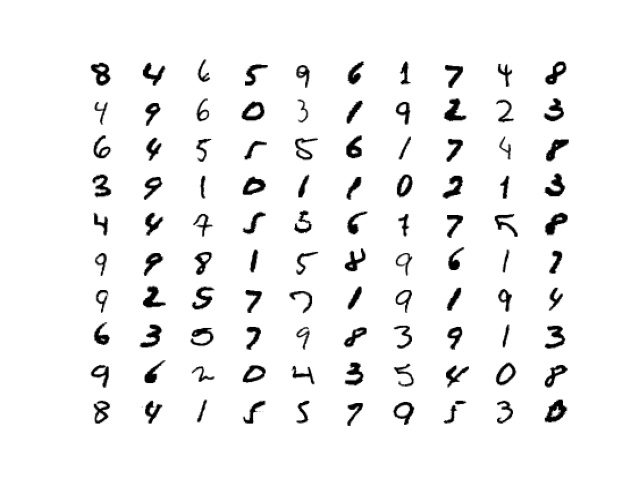 8 4 6 5 9 6 1 7 4 8
4 9 6 0 3 1 9 2 2 3
6 4 5 5 5 6 1 7 4 8
3 9 1 0 1 1 0 2 1 3
4 4 7 5 3 6 7 7 5 8
9 9 8 1 5 8 9 6 1 7
9 2 5 7 7 1 9 1 9 4
6 3 5 7 9 8 3 9 1 3
9 6 2 0 4 3 5 4 0 8
8 4 1 5 5 7 9 5 3 0